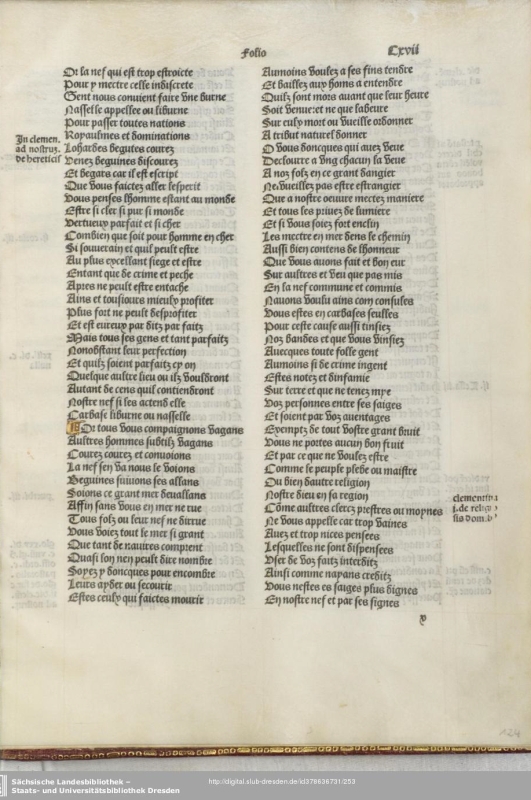 Folio
Cxvii
Et la nef qui est trop estroicte
Pour y mectre celle indiscrete
Sent nous convient faire vne hurne
Nasselle appellee ou liburne
Pour passer toutes nations
Royaulmes et dominations
Lohardes begutes courez
Venez beguines discourez
Et begars car il est escript
Que vous faictez aller lesperit
Vous penses lhomme estant au monde
Estre si cler si pur si monde
Vertueux parfait et si cher
Combien que soit pour homme en cher
Si souuerain et quil peult estre
Au plus excellant siege et estre
Entant que de crime et peche
Apres ne peult estre entache
Ains et tousiours mieulx profiter
Plus fort ne peult desprofiter
Et est eureux par ditz par faitz
Mais tous ses gens et tant parfaitz
Nonobstant leur perfection
Et quilz soient parfaitz cy on
Quelque aultre lieu ou ilz vouldront
Autant de cens quil contiendront
Nostre nef si les actend elle
Carbase liburne ou nasselle
Et tous vous compaignons vagans
Aultres hommes subtilz vagans
Courez courez et conuoions
La nef sen va nous le voions
Beguines suiuons ses allans
Soions ce grant mer deuallans
Affin sans vous en mer ne rue
Tous folz ou leur nef ne ditrue
Vous voiez tout le mer si grant
Que tant de nauires comprent
Quasi lon nen peult dire nombre
Soyez y doncques pour encombre
Leurs ayder ou secourir
Estes ceulx qui faictes mourir
In clemen.
ad nostrum.
de hereticis
Aumoins voulez a ses fins tendre
Et baillez aux homs a entendre
Quilz sont mors auant que leur heure
Soit venue et ne que labeure
Sur eulx mort ou vieille ordonner
A tribut naturel donner
O vous doncques qui auez veue
Decloutre a vng chacun la veue
A noz folz en ce grant dangier
Ne vueillez pas estre estrangier
Que a nostre oeuure mectez maniere
Et tous les priuez de lumiere
Et si vous soiez fort enclin
Les mectre en mer dens le chemin
Aussi bien contens de lhonneur
Que vous auons fait et bon eur
Sur aultres et veu que pas mis
En la nef commune et commis
Nauons voulu ains com consules
Vous estes en carbases seulles
Pour ceste cause aussi tinsiez
Noz bandes et que vous vinsiez
Auecques toute folle gent
Aumoins si de crime ingent
Estes notez et dinfamie
Sur terre et que ne tenez mye
Voz personnes entre ses saiges
Et soient par voz auentages
Exemptz de tout vostre grant bruit
Vous ne portes aucun bon fruit
Et par ce que ne voulez estre
Comme le peuple plebe ou maistre
Ou bien hautre religion
Nostre dieu en sa region
Cõme aultres clercz prestres ou moynes
Ne vous appelle car trop vaines
Auez et trop nices pensees
Lesquelles ne sont dispensees
Vser de voz faitz interditz
Ainsi comme nayans creditz
Vous nestes es saiges plus dignes
En nostre nef et par ses signes
clementina
i. de religi
sis dom.
v
124
Sächsische Landesbibliothek –
Staats- und Universitätsbibliothek Dresden
http://digital.slub-dresden.de/id376636731/253